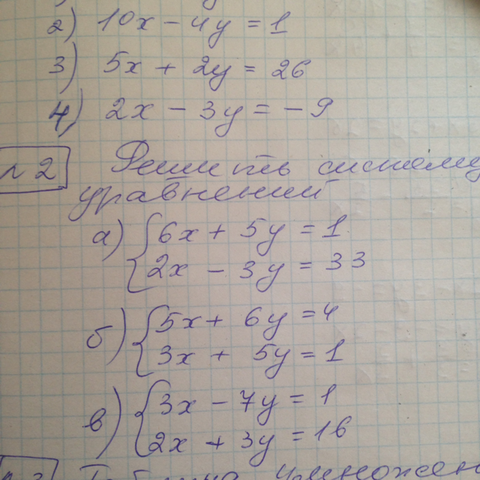 2) 10x - 4y = 1
3) 5x + 2y = 26
4) 2x - 3y = -9
№2 Решить систему
уравнений
а) { 6x + 5y = 1
2x - 3y = 33
б) { 5x + 6y = 4
3x + 5y = 1
в) { 3x - 7y = 1
2x + 3y = 16